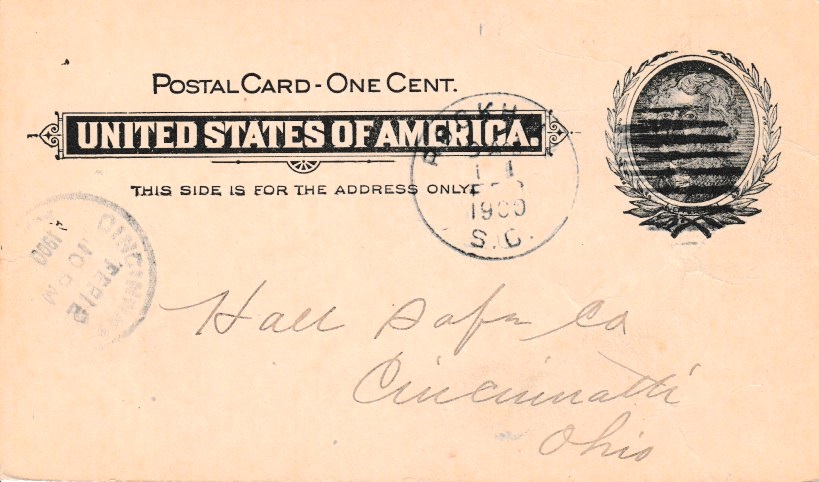 POSTAL CARD - ONE CENT.
UNITED STATES OF AMERICA.
THIS SIDE IS FOR THE ADDRESS ONLY.
ROCKH
FEB
1900
S.C.
CINCINNA
FEB 12
10 PM
1900
Hall Safe Co
Cincinnatti
Ohio